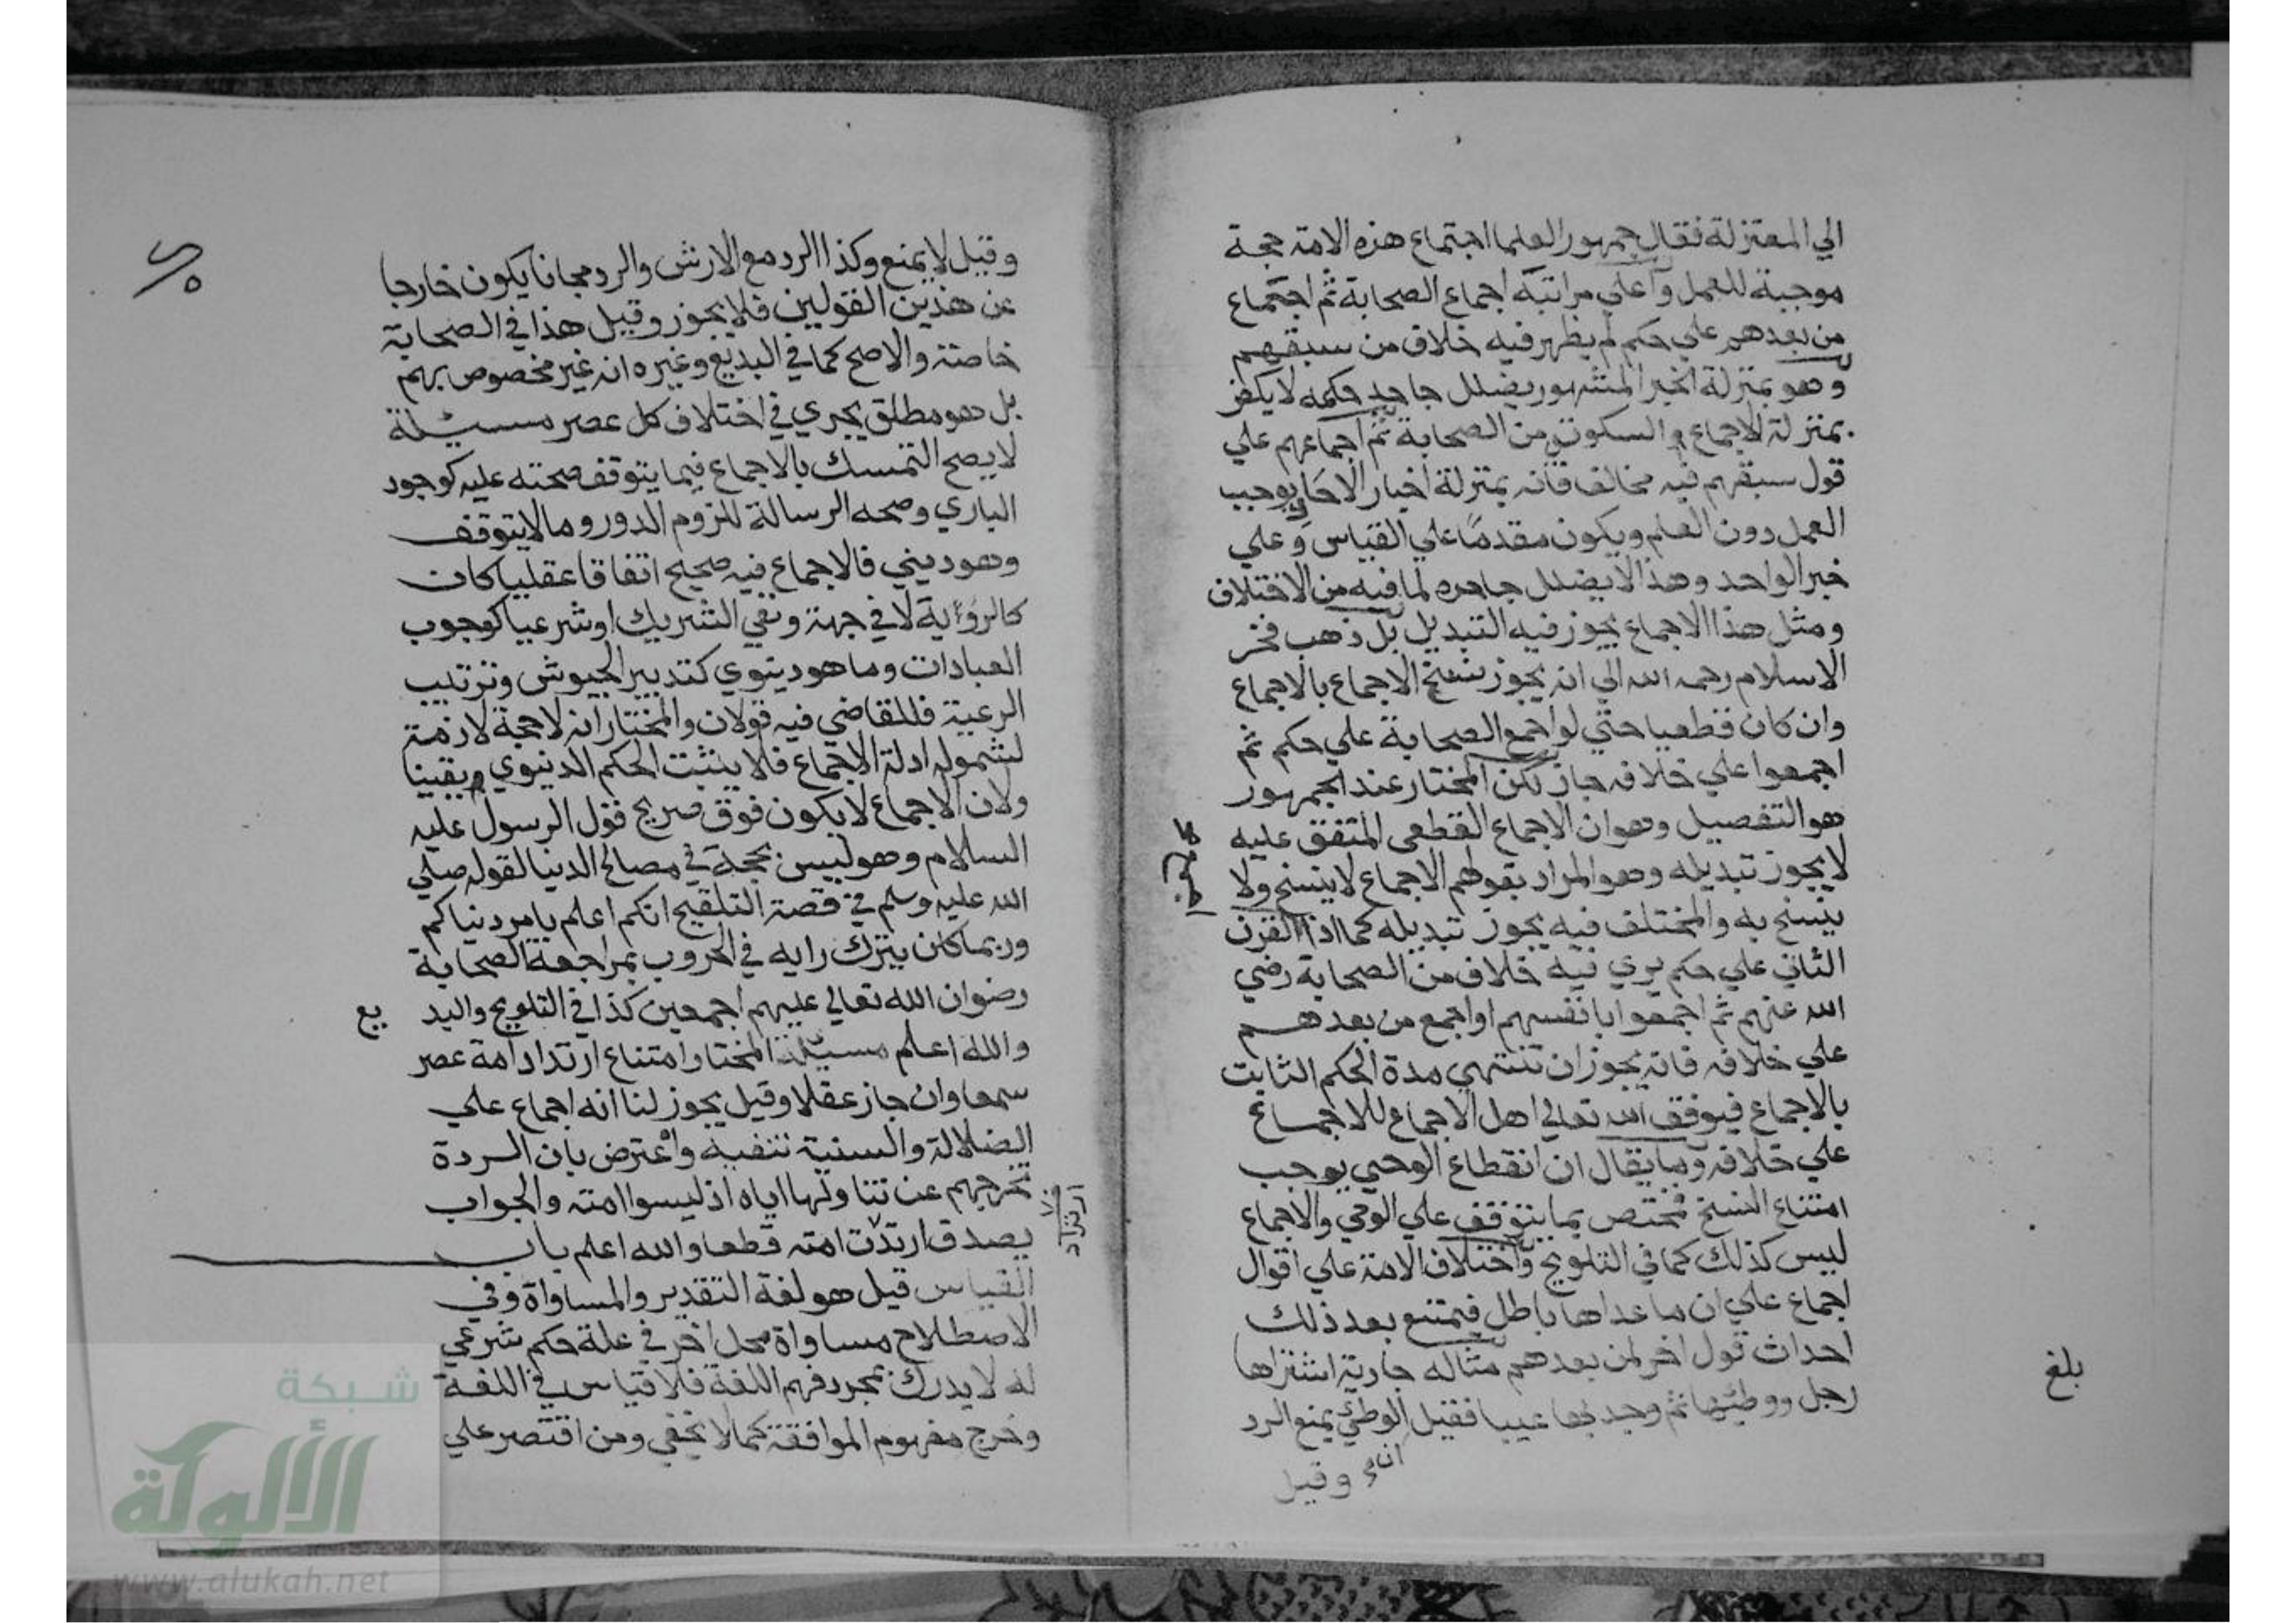 الي المعتزلة فقال جمهور العلما اجتماع هذه الامة حجة
موجبة للعمل وأعلي مراتبه اجماع الصحابة ثم اجتماع
من بعدهم علي حكم لم يظهر فيه خلاف من سبقهم
وهو بمنزلة الخبر المشهور يضلل جاحد حكمه لا يكفر
بمنزلة الاجماع والسكوتي من الصحابة ثم اجماعهم علي
قول سبقهم فيه مخالف فانه بمنزلة اخبار الاحاد يوجب
العمل دون العلم ويكون مقدما علي القياس وعلي
خبر الواحد وهذا لا يضلل جاحده لما فيه من الاختلاف
ومثل هذا الاجماع يجوز فيه التبديل بل ذهب فخر
الاسلام رحمه الله الي انه يجوز نسخ الاجماع بالاجماع
وان كان قطعيا حتي لو اجمع الصحابة علي حكم ثم
اجمعوا علي خلافه جاز لكن المختار عند الجمهور
هو التفصيل وهو ان الاجماع القطعي المتفق عليه
لا يجوز تبديله وهو المراد بقولهم الاجماع لا ينسخ ولا
ينسخ به والمختلف فيه يجوز تبديله كما اذا القرن
الثاني علي حكم يري فيه خلاف من الصحابة رضي
الله عنهم ثم اجمعوا بانفسهم او اجمع من بعدهم
علي خلافه فانه يجوز ان تنتهي مدة الحكم الثابت
بالاجماع فيوفق الله تعالي اهل الاجماع للاجماع
علي خلافه وما يقال ان انقطاع الوحي يوجب
امتناع النسخ فمختص بما يتوقف علي الوحي والاجماع
ليس كذلك كما في التلويح واختلاف الامة علي اقوال
اجماع علي ان ما عداها باطل فيمتنع بعد ذلك
احداث قول اخر لمن بعدهم مثاله جارية اشتراها
رجل ووطئها ثم وجد بها عيبا فقيل الوطئ يمنع الرد
وقيل
بلغ
وقيل لا يمنع وكذا الرد مع الارش والرد مجانا يكون خارجا
عن هذين القولين فلا يجوز وقيل هذا في الصحابة
خاصة والاصح كما في البديع وغيره انه غير مخصوص بهم
بل هو مطلق يجري في اختلاف كل عصر مسئلة
لا يصح التمسك بالاجماع فيما يتوقف صحته عليه كوجود
الباري وصحه الرسالة للزوم الدور وما لا يتوقف
وهو ديني فالاجماع فيه صحيح اتفاقا عقليا كان
كالرؤية لا في جهة ونفي الشريك او شرعيا كوجوب
العبادات وما هو دينوي كتدبير الجيوش وترتيب
الرعية فللقاضي فيه قولان والمختار انه لا حجة لازمة
لشموله ادلة الاجماع فلا يثبت الحكم الدينوي يقينا
ولان الاجماع لا يكون فوق صريح قول الرسول عليه
السلام وهو ليس بحجة في مصالح الدنيا لقوله صلي
الله عليه وسلم في قصة التلقيح انكم اعلم بامر دنياكم
وربما كان يترك رايه في الحروب بمراجعة الصحابة
رضوان الله تعالي عليهم اجمعين كذا في التلويح والبد يع
والله اعلم مسئلة المختار امتناع ارتداد امة عصر
سمعا وان جاز عقلا وقيل يجوز لنا انه اجماع علي
الضلالة والسنية تنفيه واعترض بان الردة
تخرجهم عن تناولها اياه اذ ليسوا امته والجواب
يصدق ارتدت امته قطعا والله اعلم باب
القياس قيل هو لغة التقدير والمساواة وفي
الاصطلاح مساواة محل اخر في علة حكم شرعي
له لا يدرك بمجرد فهم اللغة فلا قياس في اللغة
وخرج مفهوم الموافقة كما لا يخفي ومن اقتصر علي
شبكة
الألوكة
www.alukah.net